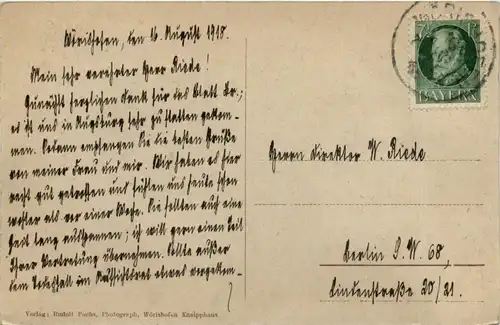 Wörishofen, den 16. August 1918.
Mein sehr verehrter Herr Riede!
Zunächst herzlichen Dank für das Blatt Br.;
es ist uns in Augsburg sehr zu statten gekom-
men. Sodann empfangen Sie die besten Grüße
von meiner Frau und mir. Wir haben es hier
recht gut getroffen und fühlen uns heute schon
wohler als vor einer Woche. Sie sollten auch eine
Zeit lang ausspannen; ich will gern einen Teil
Ihrer Vertretung übernehmen. Sollte außer
dem Todesfall im Aufsichtsrat etwas vorgekom-
Verlag: Rudolf Fuchs, Photograph, Wörishofen Kneipphaus.
BAYERN
Herrn Direktor W. Riede
Berlin S.W. 68,
Lindenstraße 20/21.